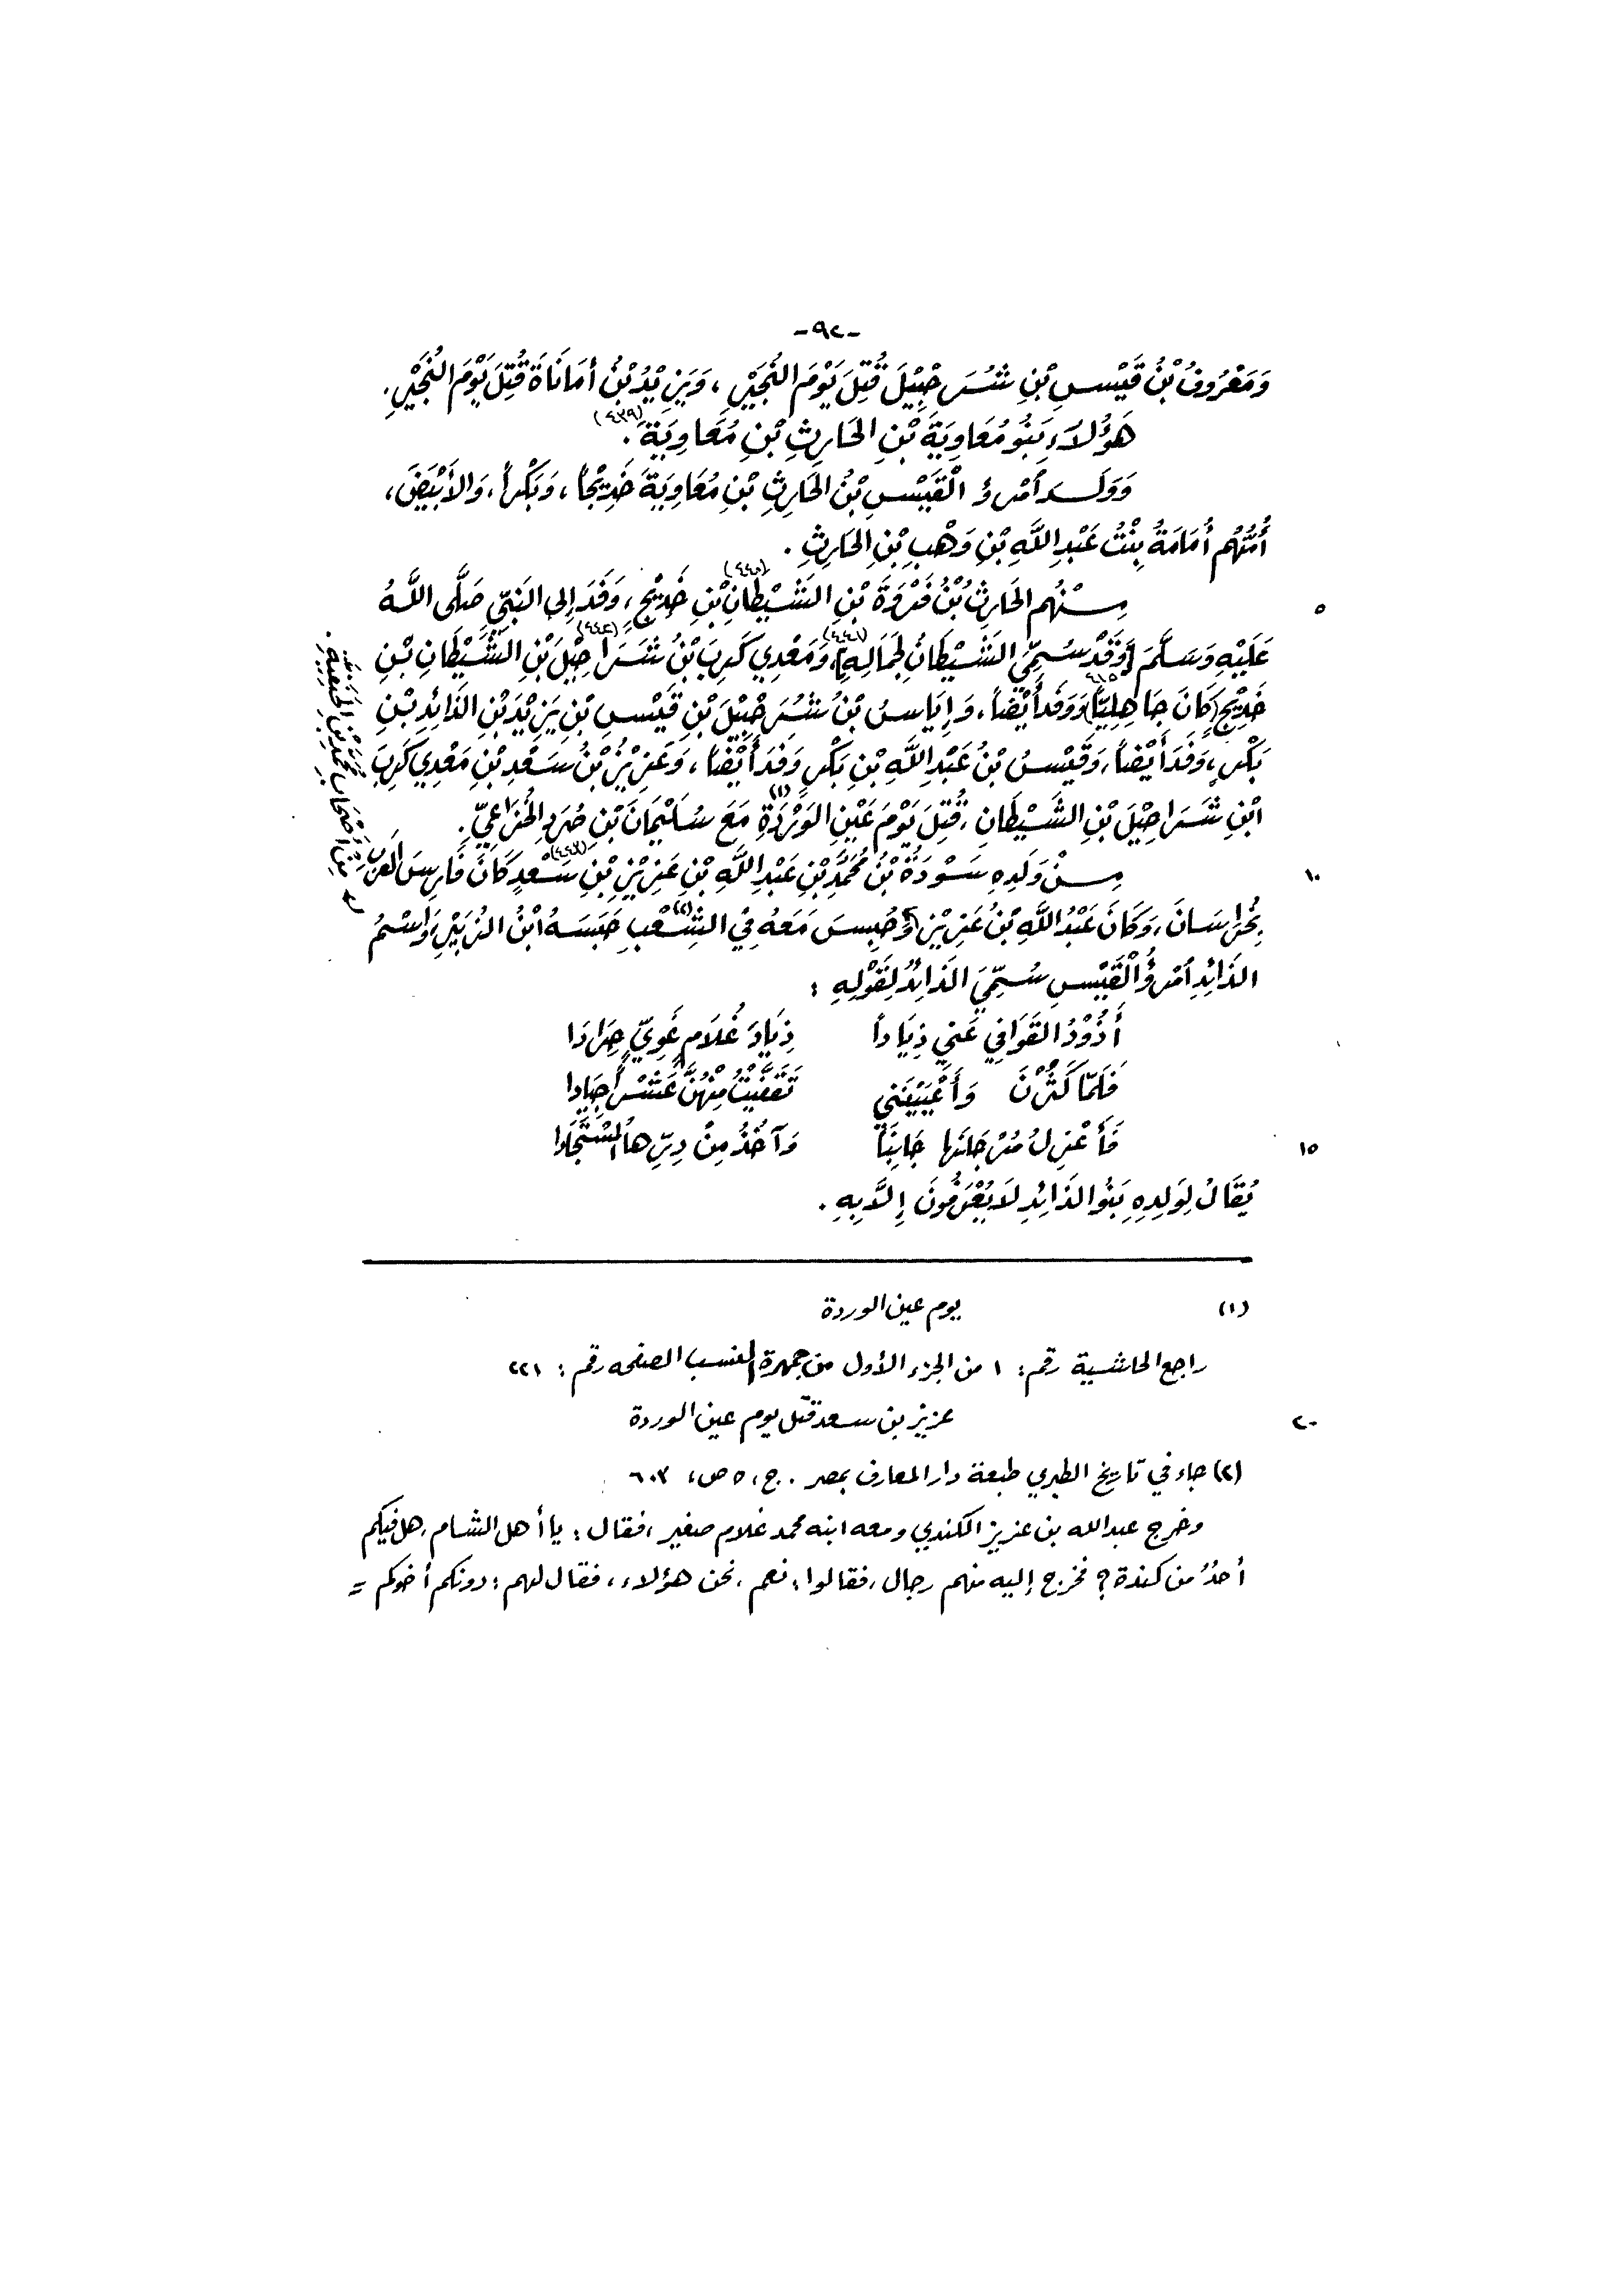 -٩٢-
وَمَعْرُوفُ بْنُ قَيْسِ بْنِ شُرَحْبِيْلَ قُتِلَ يَوْمَ النُّجَيْرِ ، وَيَزِيْدُ بْنُ أَمَانَاةَ قُتِلَ يَوْمَ النُّجَيْرِ .
هَؤُلَاءِ بَنُو مُعَاوِيَةَ بْنِ الحَارِثِ بْنِ مُعَاوِيَةَ . (٤٣٩)
وَوَلَدَ أمْرؤُ الْقَيْسِ بْنُ الحَارِثِ بْنِ مُعَاوِيَةَ خَدِيْجاً ، وَبَكْراً ، وَالأَبْيَضَ ،
أُمُّهُم أُمَامَةُ بِنْتُ عَبْدِ اللَّهِ بْنِ وَهْبِ بْنِ الحَارِثِ .
مِنْهُم الحَارِثُ بْنُ فَرْوَةَ بْنِ الشَّيْطَانِ (٤٤٠) بْنِ خَدِيْجٍ ، وَفَدَ إِلى النَبِيِّ صَلَّى اللَّهُ ٥
عَلَيْهِ وَسَلَّمَ [وَقَدْ سُمِّيَ الشَيْطَانُ لِجَمَالِهِ] (٤٤١) ، وَمَعْدِي كَرِبَ بْنُ شَرَاحِيْلَ (٤٤٢) بْنِ الشَّيْطَانِ بْنِ
خَدِيْجٍ (كَانَ جَاهِلِيّاً) وَوَفَدَ أَيْضاً ، وَإِيَاسُ بْنُ شُرَحْبِيْلَ بْنِ قَيْسِ بْنِ يَزِيْدَ بْنِ الذَائِدِ بْنِ
بَكْرٍ ، وَفَدَ أَيْضاً ، وَقَيْسُ بْنُ عَبْدِ اللَّهِ بْنِ بَكْرٍ وَفَدَ أَيْضاً ، وَعَزِيْزُ بْنُ سَعْدِ بْنِ مَعْدِي كَرِبَ
ابْنِ شَرَاحِيْلَ بْنِ الشَّيْطَانِ ، قُتِلَ يَوْمَ عَيْنِ الوَرْدَةِ (١) مَعَ سُلَيْمَانَ بْنِ صُرَدٍ الخُزَاعِيِّ .
مِنْ وَلَدِهِ سَوْرَةُ بْنُ مُحَمَّدِ بْنِ عَبْدِ اللَّهِ بْنِ عَزِيْزِ بْنِ سَعْدٍ (٤٤٣) كَانَ فَارِسَ العَرَبِ ١٠
بِخُرَاسَانَ ، وَكَانَ عَبْدُ اللَّهِ بْنُ عَزِيْزٍ وَحُبِسَ مَعَهُ فِي الشِّعْبِ (٢) حَبَسَهُ ابْنُ الزُبَيْرِ ، وَاسْمُ
مِنْ أَصْحَابِ مُحَمَّدِ بْنِ الحَنَفِيَّةِ
الذَائِدِ أمْرؤُ الْقَيْسِ سُمِّيَ الذَائِدُ لِقَوْلِهِ :
أَذُوْدُ القَوَافِي عَنِي ذِيَاداً ذِيَادَ غُلَامٍ غَوِيٍّ جِرَادَا
فَلَمَّا كَثُرْنَ وَأَعْيَيْنَنِي تَنَقَّيْتُ مِنْهُنَّ عَشْراً جِيَادا
فَأَعْزِلُ مُرْجَانَها جَانِباً وَآخُذُ مِنْ دِرِّهَا المُسْتَجَادا ١٥
يُقَالُ لِوَلِدِهِ بَنُو الذَائِدِ لَا يُعْرَفُونَ إِلَّا بِهِ .
(١) يوم عين الوردة
راجع الحاشية رقم : ١ من الجزء الأول من جمهرة النسب الصفحه رقم : ٢٢١
عزيز بن سعد قتل يوم عين الوردة ٢٠
(٢) جاء في تاريخ الطبري طبعة دار المعارف بمصر . ج ، ٥ ص ، ٦٠٣
وخرج عبد الله بن عزيز الكندي ومعه ابنه محمد غلام صغير ، فقال : يا أهل الشام ، هل فيكم
أحدُ من كندة ؟ فخرج إليه منهم رجال ، فقالوا : نعم ، نحن هؤلاء ، فقال لهم : دونكم أخوكم =